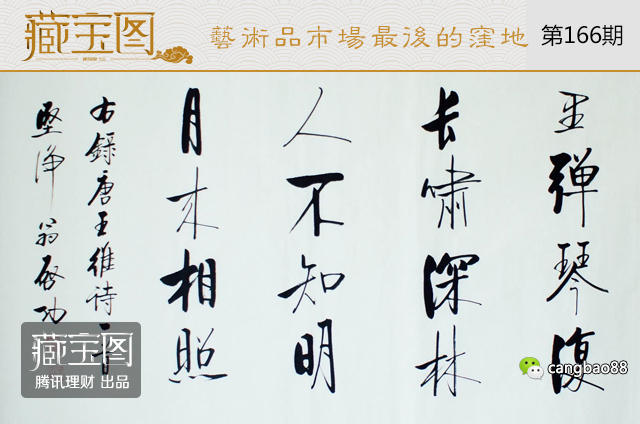 藏宝图
藝術品市場最後的窪地
第166期
里彈琴復
长嘯深林
人不知明
月来相照
右録唐王維詩一首
堅净翁啟功
藏宝图
腾讯理财 出品
cangbao88